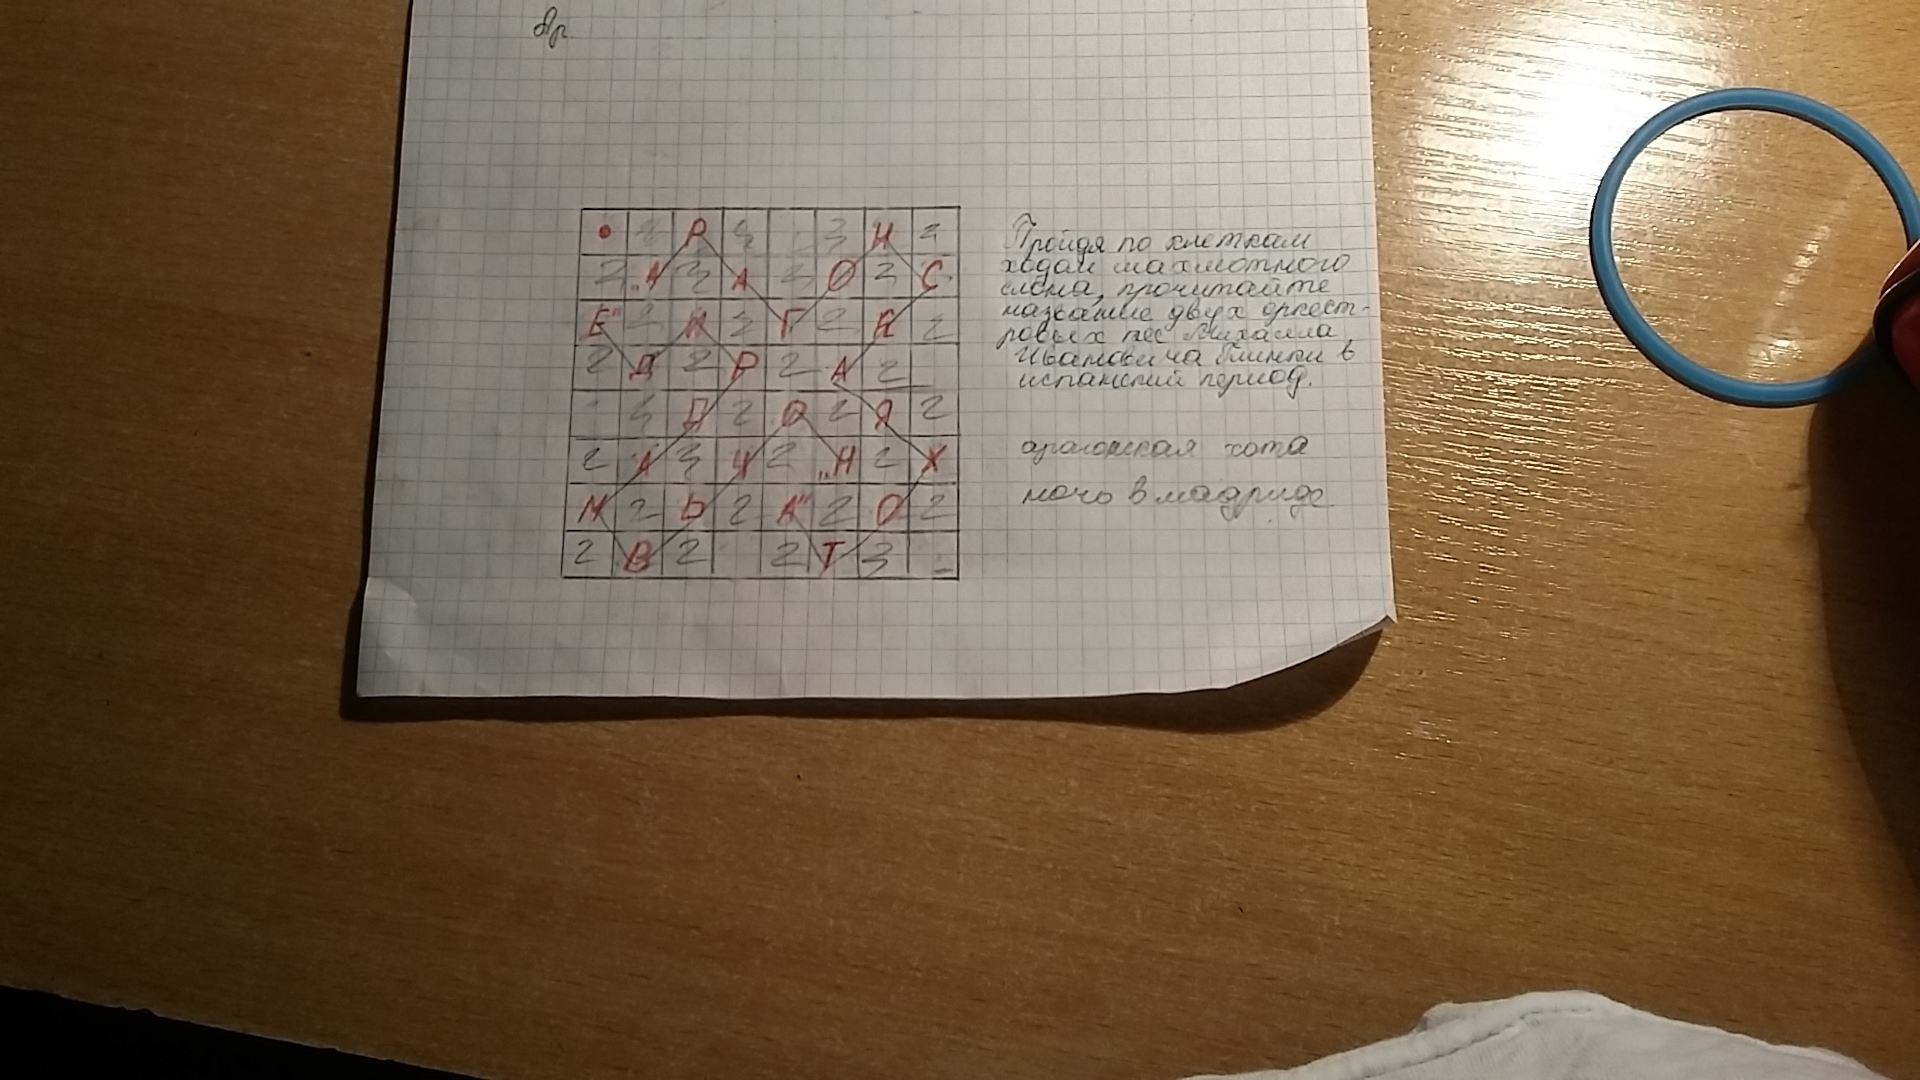 Др
• 3 Р 3 3 Н 2
2 „А 3 А 3 О 2 С
Е" 2 И 3 Г 2 К 2
2 Д 2 Р 2 А 2
3 Д 2 О 2 Я 2
2 А 3 Ч 2 „Н 2 Х
М 2 Ь 2 А" 2 О 2
2 В 2 2 Т 3
Пройдя по клеткам
ходом шахмотного
слона, прочитайте
название двух оркест-
ровых пес Михаила
Ивановича Глинки в
испанский период.
арагонская хота
ночь в мадриде